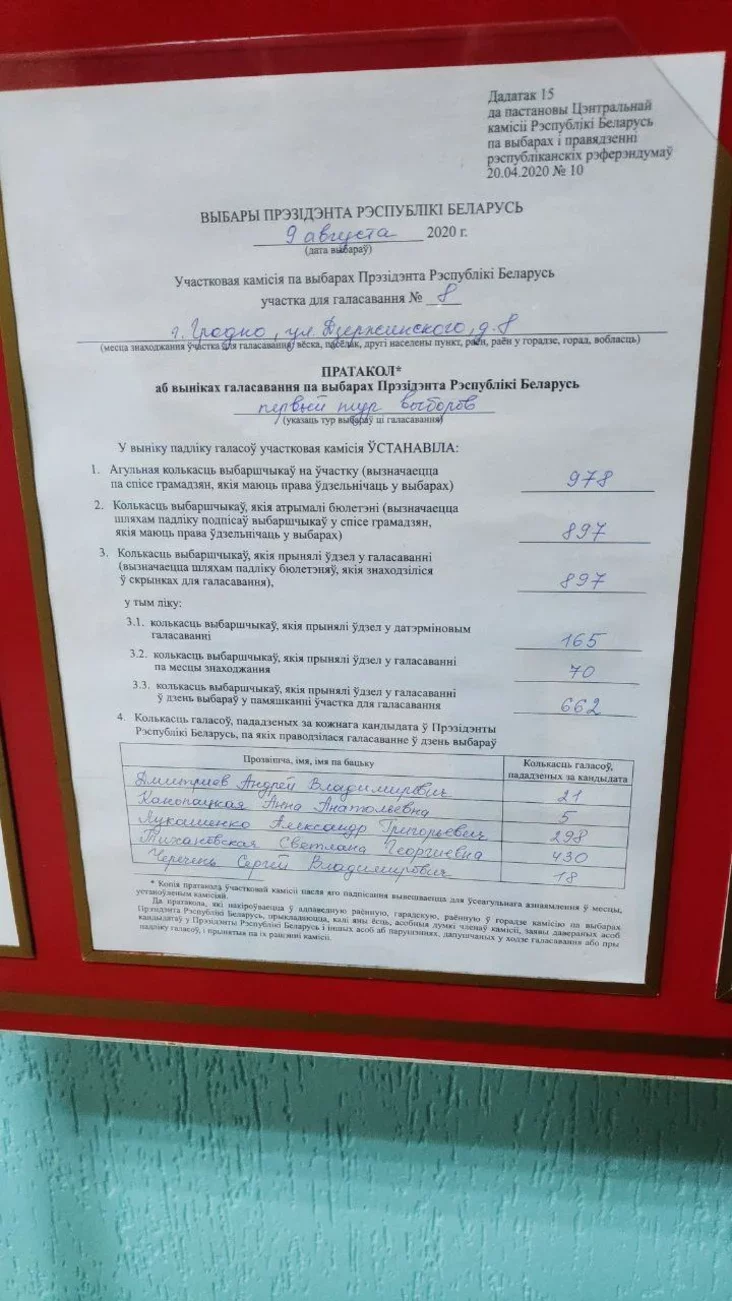 Дадатак 15
да пастановы Цэнтральнай
камісіі Рэспублікі Беларусь
па выбарах і правядзенні
рэспубліканскіх рэферэндумаў
20.04.2020 № 10
ВЫБАРЫ ПРЭЗІДЭНТА РЭСПУБЛІКІ БЕЛАРУСЬ
9 августа 2020 г.
(дата выбараў)
Участковая камісія па выбарах Прэзідэнта Рэспублікі Беларусь
участка для галасавання № 8
г. Гродно, ул. Дзержинского, д. 8
(месца знаходжання ўчастка для галасавання: вёска, пасёлак, другі населены пункт, раён, раён у горадзе, горад, вобласць)
ПРАТАКОЛ*
аб выніках галасавання па выбарах Прэзідэнта Рэспублікі Беларусь
первый тур выборов
(указаць тур выбараў ці галасавання)
У выніку падліку галасоў участковая камісія ЎСТАНАВІЛА:
1. Агульная колькасць выбаршчыкаў на ўчастку (вызначаецца
па спісе грамадзян, якія маюць права ўдзельнічаць у выбарах) 978
2. Колькасць выбаршчыкаў, якія атрымалі бюлетэні (вызначаецца
шляхам падліку подпісаў выбаршчыкаў у спісе грамадзян,
якія маюць права ўдзельнічаць у выбарах) 897
3. Колькасць выбаршчыкаў, якія прынялі ўдзел у галасаванні
(вызначаецца шляхам падліку бюлетэняў, якія знаходзіліся
ў скрынках для галасавання), 897
у тым ліку:
3.1. колькасць выбаршчыкаў, якія прынялі ўдзел у датэрміновым
галасаванні 165
3.2. колькасць выбаршчыкаў, якія прынялі ўдзел у галасаванні
па месцы знаходжання 70
3.3. колькасць выбаршчыкаў, якія прынялі ўдзел у галасаванні
ў дзень выбараў у памяшканні ўчастка для галасавання 662
4. Колькасць галасоў, пададзеных за кожнага кандыдата ў Прэзідэнты
Рэспублікі Беларусь, па якіх праводзілася галасаванне ў дзень выбараў
Прозвішча, імя, імя па бацьку Колькасць галасоў,
пададзеных за кандыдата
Дмитриев Андрей Владимирович 21
Канопацкая Анна Анатольевна 5
Лукашенко Александр Григорьевич 298
Тихановская Светлана Георгиевна 430
Черечень Сергей Владимирович 18
* Копія пратакола ўчастковай камісіі пасля яго падпісання вывешваецца для ўсеагульнага азнаямлення ў месцы,
устаноўленым камісіяй.
Да пратакола, які накіроўваецца ў адпаведную раённую, гарадскую, раённую ў горадзе камісію па выбарах
Прэзідэнта Рэспублікі Беларусь, прыкладаюцца, калі яны ёсць, асобныя думкі членаў камісіі, заявы давераных асоб
кандыдатаў у Прэзідэнты Рэспублікі Беларусь і іншых асоб аб парушэннях, дапушчаных у ходзе галасавання або пры
падліку галасоў, і прынятыя па іх рашэнні камісіі.